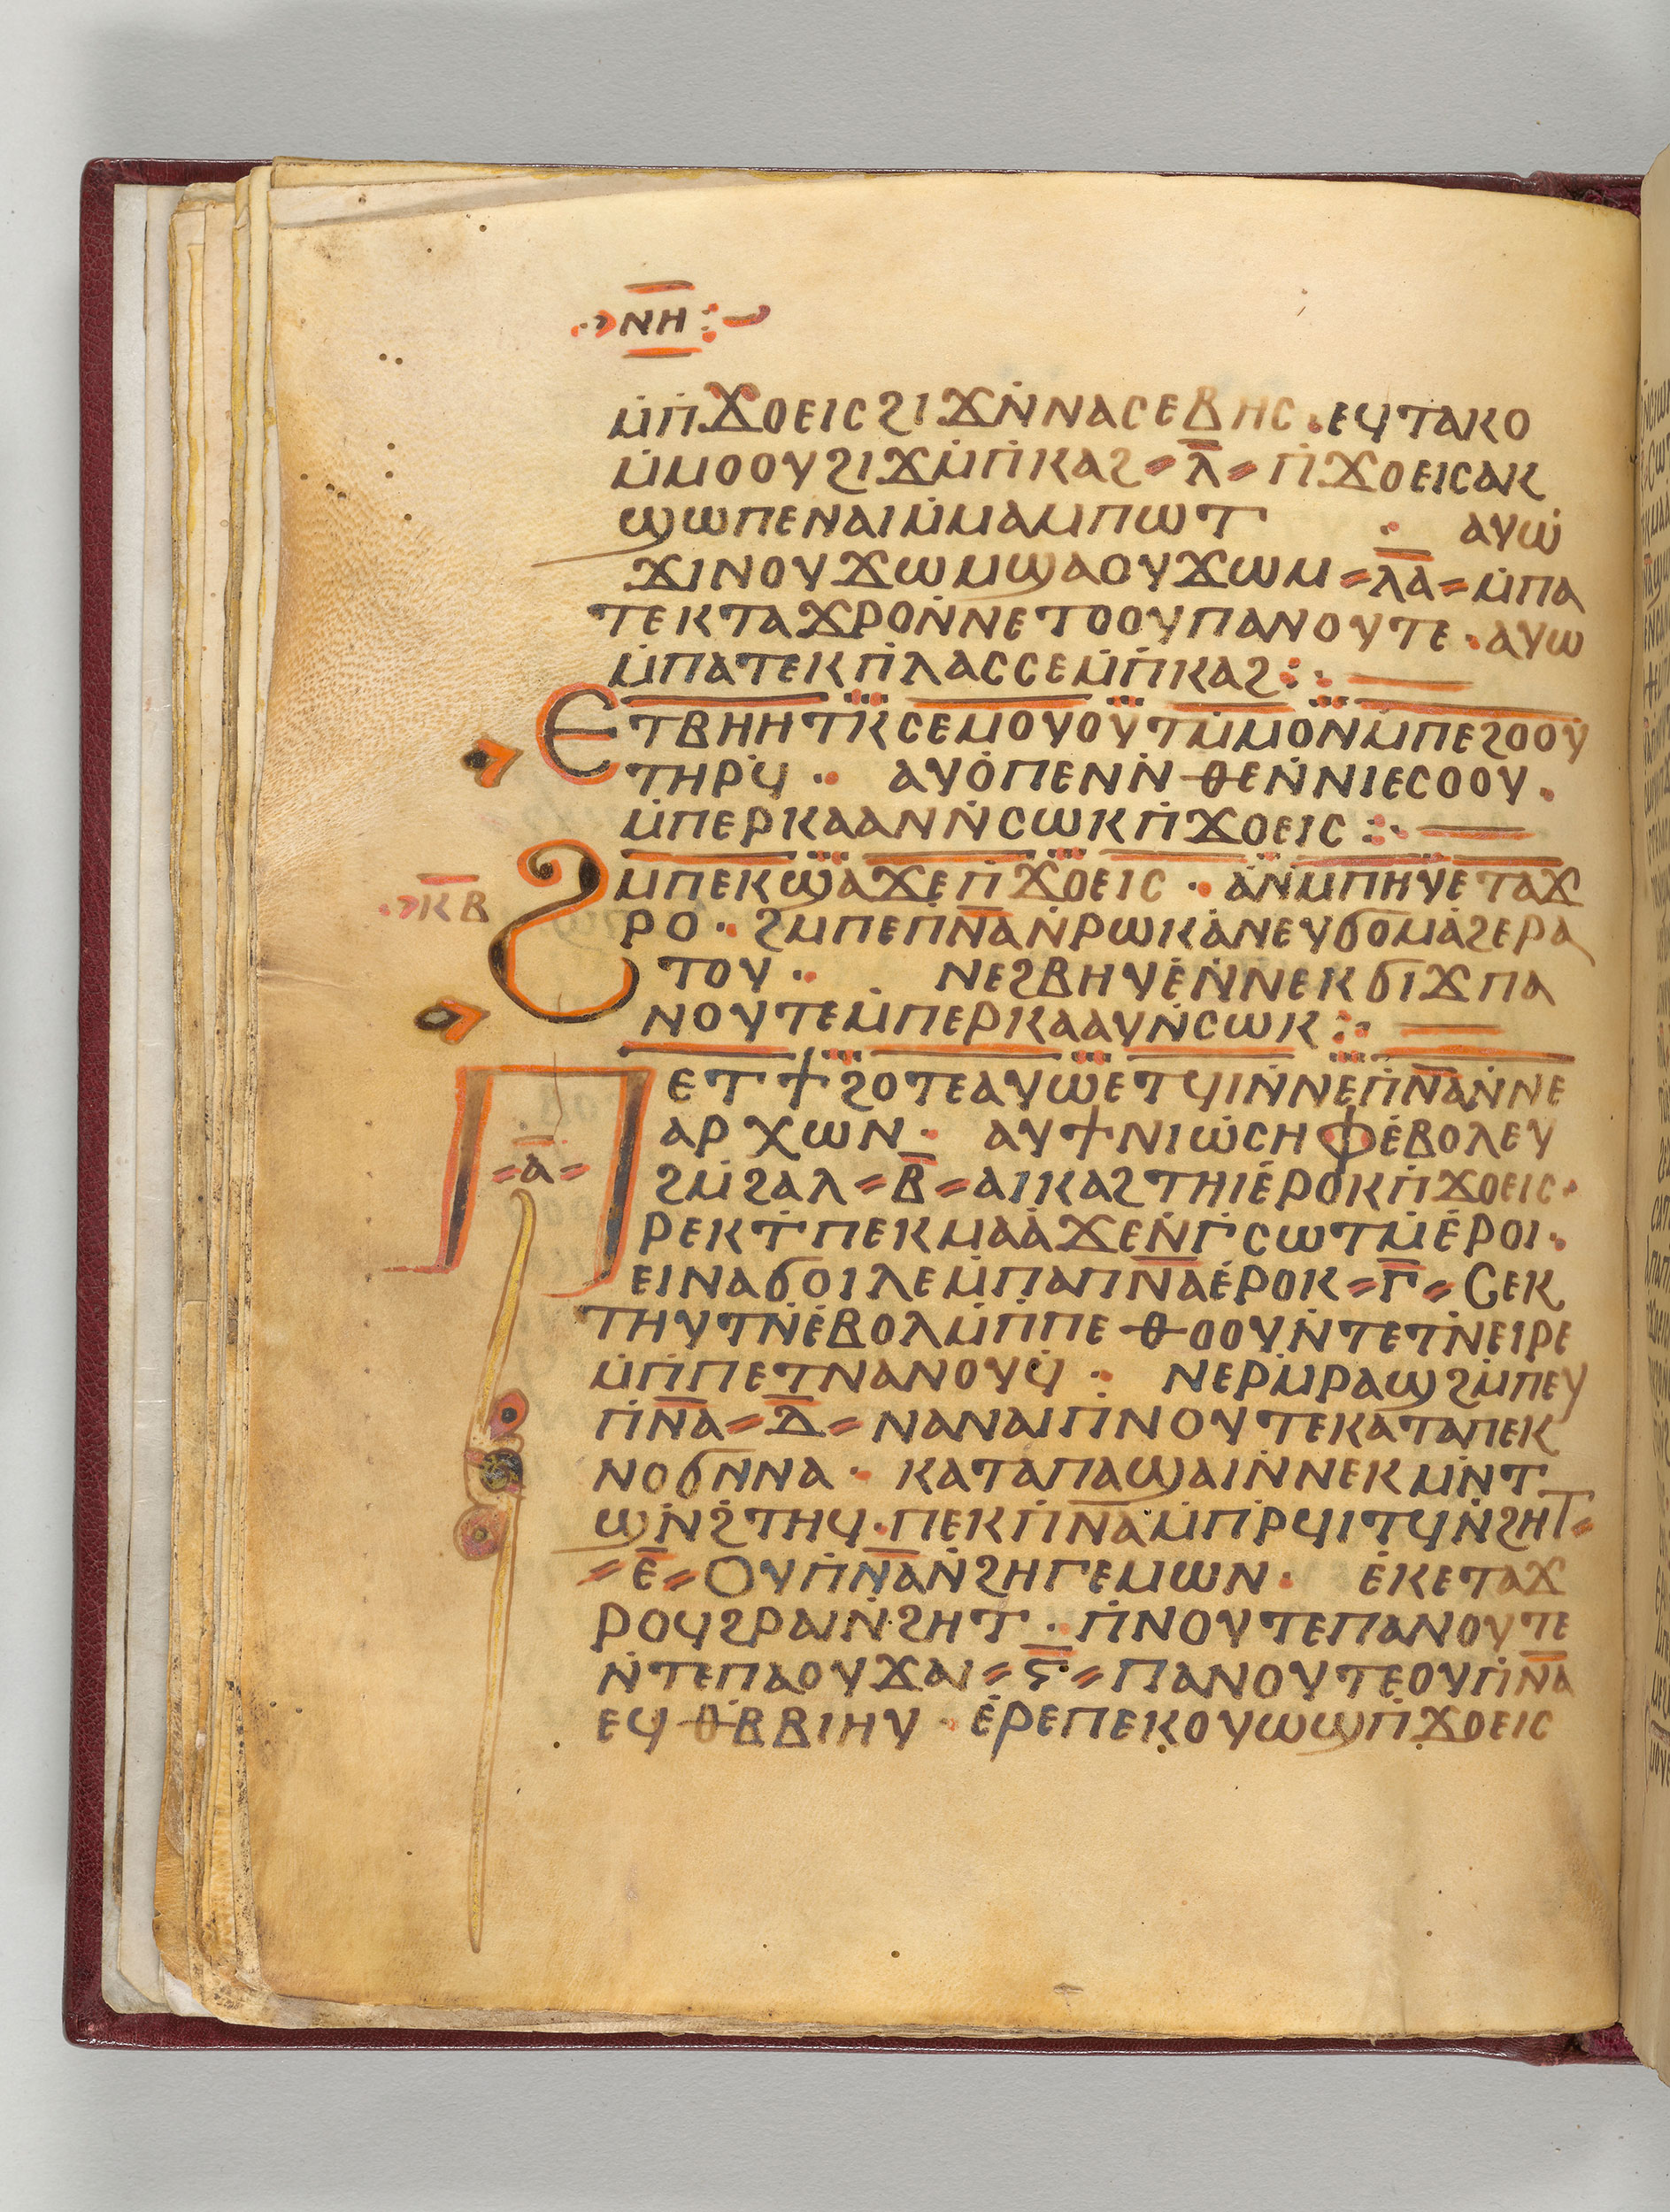 ⲛⲏ
ⲙ̇ⲡ̇ϫⲟⲉⲓⲥϩⲓϫⲛ̇ⲛⲁⲥⲉⲃⲏⲥ·ⲉϥⲧⲁⲕⲟ
ⲙ̇ⲙⲟⲟⲩϩⲓϫⲙ̇ⲡ̇ⲕⲁϩ⸗ⲗ̅⸗ⲡ̇ϫⲟⲉⲓⲥⲁⲕ
ϣⲱⲡⲉⲛⲁⲓⲙ̇ⲙⲁⲙⲡⲱⲧ · ⲁⲩⲱ̇
ϫⲓⲛⲟⲩϫⲱⲙϣⲁⲟⲩϫⲱⲙ⸗ⲗ̅ⲁ̅⸗ⲙ̇ⲡⲁ
ⲧⲉⲕⲧⲁϫⲣⲟⲛ̇ⲛⲉⲧⲟⲟⲩⲡⲁⲛⲟⲩⲧⲉ·ⲁⲩⲱ
ⲙ̇ⲡⲁⲧⲉⲕⲡ̇ⲗⲁⲥⲥⲉⲙ̇ⲡ̇ⲕⲁϩ:·
ⲉⲧⲃⲏⲏⲧⲕ̇ⲥⲉⲙⲟⲩⲟⲩⲧⲙ̇ⲙⲟⲛⲙ̇ⲡⲉϩⲟⲟⲩ
ⲧⲏⲣϥ̇· ⲁⲩⲟ̇ⲡⲉⲛⲛ̇ⲑⲉⲛ̇ⲛⲓⲉⲥⲟⲟⲩ·
ⲙ̇ⲡⲉⲣⲕⲁⲁⲛⲛ̇ⲥⲱⲕⲡ̇ϫⲟⲉⲓⲥ:·
ⲕ̅ⲃ̅
ϩⲙⲡⲉⲕϣⲁϫⲉⲡ̇ϫⲟⲉⲓⲥ·ⲁ̇ⲛⲙⲡⲏⲩⲉⲧⲁϫ
ⲣⲟ·ϩⲙⲡⲉⲡ̅ⲛ̅ⲁ̅ⲛ̇ⲣⲱⲕⲁ̇ⲛⲉⲩϭⲟⲙⲁ̇ϩⲉⲣⲁ
ⲧⲟⲩ· ⲛⲉϩⲃⲏⲩⲉ̇ⲛ̇ⲛⲉⲕϭⲓϫⲡⲁ
ⲛⲟⲩⲧⲉⲙ̇ⲡⲉⲣⲕⲁⲁⲩⲛ̇ⲥⲱⲕ:·
ⲡⲉⲧϯϩⲟⲧⲉⲁⲩⲱⲉⲧϥⲓⲛ̇ⲛⲉⲡ̅ⲛ̅ⲁ̅ⲛ̇ⲛⲉ
ⲁⲣⲭⲱⲛ· ⲁⲩϯⲛⲓⲱ̇ⲥⲏⲫⲉ̇ⲃⲟⲗⲉⲩ
⸗ⲁ̅⸗
ϩⲙ̇ϩⲁⲗ⸗ⲃ̅⸗ⲁⲓⲕⲁϩⲧⲏⲓⲉ̇ⲣⲟⲕⲡ̇ϫⲟⲉⲓⲥ·
ⲣⲉⲕϯⲡⲉⲕⲙⲁⲁ̇ϫⲉⲛ̇ⲅ̇ⲥⲱⲧⲙ̇ⲉ̇ⲣⲟⲓ·
ⲉⲓⲛⲁϭⲟⲓⲗⲉⲙ̇ⲡⲁⲡ̅ⲛ̅ⲁ̅ⲉ̇ⲣⲟⲕ⸗ⲅ̅⸗ⲥⲉⲕ
ⲧⲏⲩⲧⲛ̇ⲉ̇ⲃⲟⲗⲙ̇ⲡ̇ⲡⲉⲑⲟⲟⲩⲛ̇ⲧⲉⲧⲛ̇ⲉⲓⲣⲉ
ⲙ̇ⲡ̇ⲡⲉⲧⲛⲁⲛⲟⲩϥ̇· ⲛⲉⲣⲙ̇ⲣⲁϣϩⲙ̇ⲡⲉⲩ
ⲡ̅ⲛ̅ⲁ̅⸗ⲇ̅⸗ⲛⲁⲛⲁⲓⲡ̇ⲛⲟⲩⲧⲉⲕⲁⲧⲁⲡⲉⲕ
ⲛⲟϭⲛⲛⲁ· ⲕⲁⲧⲁⲡⲁϣⲁⲓⲛ̇ⲛⲉⲕⲙⲛ̇ⲧ
ϣⲛ̇ϩ̇ⲧⲏϥ·ⲡⲉⲕⲡ̅ⲛ̅ⲁ̅ⲙ̇ⲡ̇ⲣϥⲓⲧϥ̇ⲛ̇ϩⲏⲧ⸗
⸗ⲉ̅⸗ⲟⲩⲡ̅ⲛ̅ⲁ̅ⲛ̇ϩⲏⲅⲉⲙⲱⲛ· ⲉ̇ⲕⲉⲧⲁϫ
ⲣⲟϥϩⲣⲁⲓⲛ̇ϩⲏⲧ·ⲡ̇ⲛⲟⲩⲧⲉⲡⲁⲛⲟⲩⲧⲉ
ⲛ̇ⲧⲉⲡⲁⲟⲩϫⲁⲓ⸗ⲋ̅⸗ⲡⲁⲛⲟⲩⲧⲉⲟⲩⲡ̅ⲛ̅ⲁ̅
ⲉϥⲑ̇ⲃⲃⲓⲏⲩ·ⲉ̇ⲣⲉⲡⲉⲕⲟⲩⲱϣⲡ̇ϫⲟⲉⲓⲥ